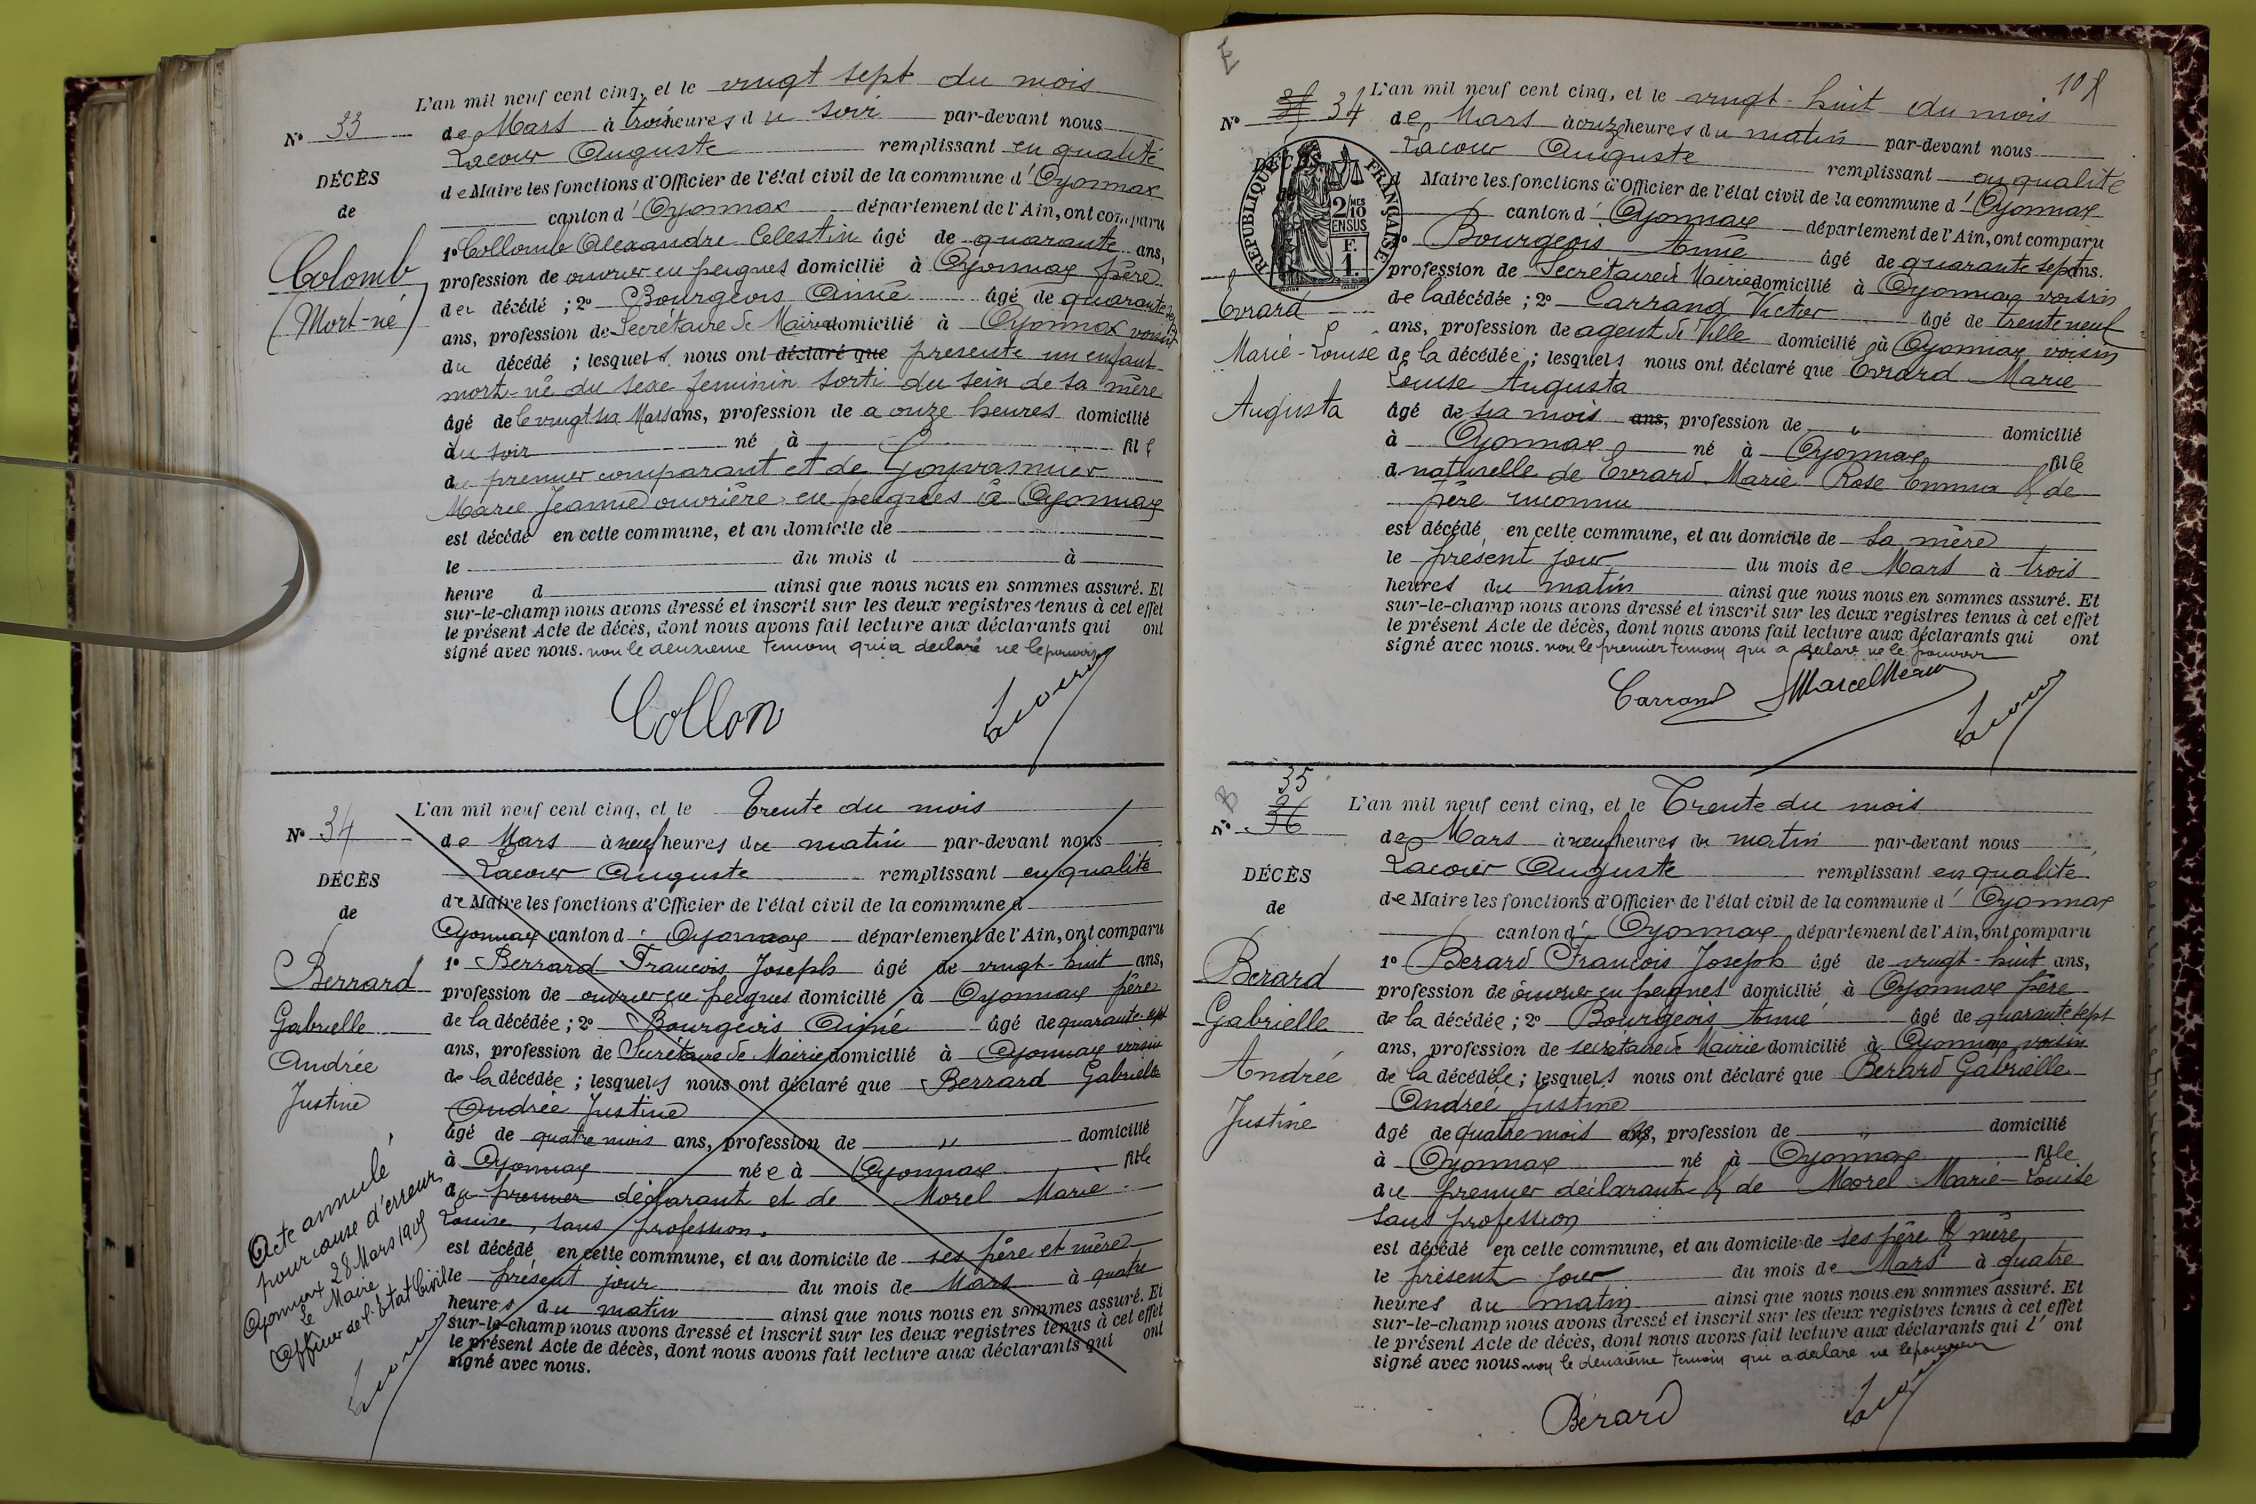 L'an mil neuf cent cinq, et le vingt sept du mois
N° 33
de Mars à trois heures du soir par-devant nous
Lacour Auguste remplissant en qualité
DÉCÈS
de Maire les fonctions d'Officier de l'état civil de la commune d'Oyonnax
de
canton d'Oyonnax département de l'Ain, ont comparu
1° Collomb Alexandre Celestin âgé de quarante ans,
Colomb
profession de ouvrier en peignes domicilié à Oyonnax père
(Mort-né)
du décédé ; 2° Bourgeois Aimé âgé de quarante sept
ans, profession de Secrétaire de Mairie domicilié à Oyonnax voisin
du décédé ; lesquels nous ont déclaré que presenté un enfant
mort-né du sexe feminin sorti du sein de sa mère
âgé de le vingt six Mars ans, profession de a onze heures domicilié
à du soir né à fil
du premier comparant et de
Marie Jeanne ouvrière en peignes à Oyonnax
est décédé en cette commune, et au domicile de
le du mois d à
heure d ainsi que nous nous en sommes assuré. Et
sur-le-champ nous avons dressé et inscrit sur les deux registres tenus à cet effet
le présent Acte de décès, dont nous avons fait lecture aux déclarants qui ont
signé avec nous. non le deuxieme temoin qui a declaré ne le pouvoir
Collon
Lacour
L'an mil neuf cent cinq, et le Trente du mois
N° 34
de Mars à neuf heures du matin par-devant nous
Lacour Auguste remplissant en qualité
DÉCÈS
de Maire les fonctions d'Officier de l'état civil de la commune d
de
Oyonnax canton d' Oyonnax département de l'Ain, ont comparu
1° Berrard Francois Joseph âgé de vingt-huit ans,
Berrard
profession de ouvrier en peignes domicilié à Oyonnax père
Gabrielle
de la décédée ; 2° Bourgeois Aimé âgé de quarante-sept
ans, profession de Secrétaire de Mairie domicilié à Oyonnax voisin
Andrée
de la décédée ; lesquels nous ont déclaré que Berrard Gabrielle
Justine
Andrée Justine
âgé de quatre mois ans, profession de " domicilié
à Oyonnax née à Oyonnax fille
du premier déclarant et de Morel Marie
Louise, sans profession.
est décédé en cette commune, et au domicile de ses père et mère
le présent jour du mois de Mars à quatre
heures du matin ainsi que nous nous en sommes assuré. Et
sur-le-champ nous avons dressé et inscrit sur les deux registres tenus à cet effet
le présent Acte de décès, dont nous avons fait lecture aux déclarants qui ont
signé avec nous.
Acte annulé
pour cause d'erreur
Oyonnax 28 Mars 1905
Le Maire
Officier de l'Etat Civil
Lacour
E
108
L'an mil neuf cent cinq, et le vingt-huit du mois
N° 34
de Mars à onze heures du matin par-devant nous
Lacour Auguste remplissant en qualité
DÉCÈS
RÉPUBLIQUE FRANÇAISE
2/10 MES
EN SUS
F.
1.
d Maire les fonctions d'Officier de l'état civil de la commune d'Oyonnax
canton d' Oyonnax département de l'Ain, ont comparu
1° Bourgeois Aimé âgé de quarante sept ans.
profession de Secrétaire de Mairie domicilié à Oyonnax voisin
Evrard
de la décédée ; 2° Carrand Victor âgé de trente neuf
ans, profession de agent de Ville domicilié à Oyonnax voisin
Marie-Louise
de la décédée ; lesquels nous ont déclaré que Evrard Marie
Louise Augusta
Augusta
âgé de six mois ans, profession de " domicilié
à Oyonnax né à Oyonnax fille
d naturelle de Evrard Marie Rose Emma & de
père inconnu
est décédé en cette commune, et au domicile de sa mère
le présent jour du mois de Mars à trois
heures du matin ainsi que nous nous en sommes assuré. Et
sur-le-champ nous avons dressé et inscrit sur les deux registres tenus à cet effet
le présent Acte de décès, dont nous avons fait lecture aux déclarants qui ont
signé avec nous. non le premier temoin qui a déclaré ne le pouvoir
Carrand
Lacour
B
35
36
N°
L'an mil neuf cent cinq, et le Trente du mois
de Mars à neuf heures du matin par-devant nous
Lacour Auguste remplissant en qualité
DÉCÈS
de Maire les fonctions d'Officier de l'état civil de la commune d' Oyonnax
de
canton d' Oyonnax département de l'Ain, ont comparu
1° Berard Francois Joseph âgé de vingt-huit ans,
Berard
profession de ouvrier en peignes domicilié à Oyonnax père
Gabrielle
de la décédée ; 2° Bourgeois Aimé âgé de quarante sept
ans, profession de secretaire de Mairie domicilié à Oyonnax voisin
Andrée
de la décédée ; lesquels nous ont déclaré que Berard Gabrielle
Andrée Justine
Justine
âgé de quatre mois ans, profession de " domicilié
à Oyonnax né à Oyonnax fille
du premier déclarant & de Morel Marie-Louise
sans profession
est décédé en cette commune, et au domicile de ses père & mère
le présent jour du mois de Mars à quatre
heures du matin ainsi que nous nous en sommes assuré. Et
sur-le-champ nous avons dressé et inscrit sur les deux registres tenus à cet effet
le présent Acte de décès, dont nous avons fait lecture aux déclarants qui l' ont
signé avec nous non le deuxième temoin qui a declare ne le pouvoir
Bérard
Lacour